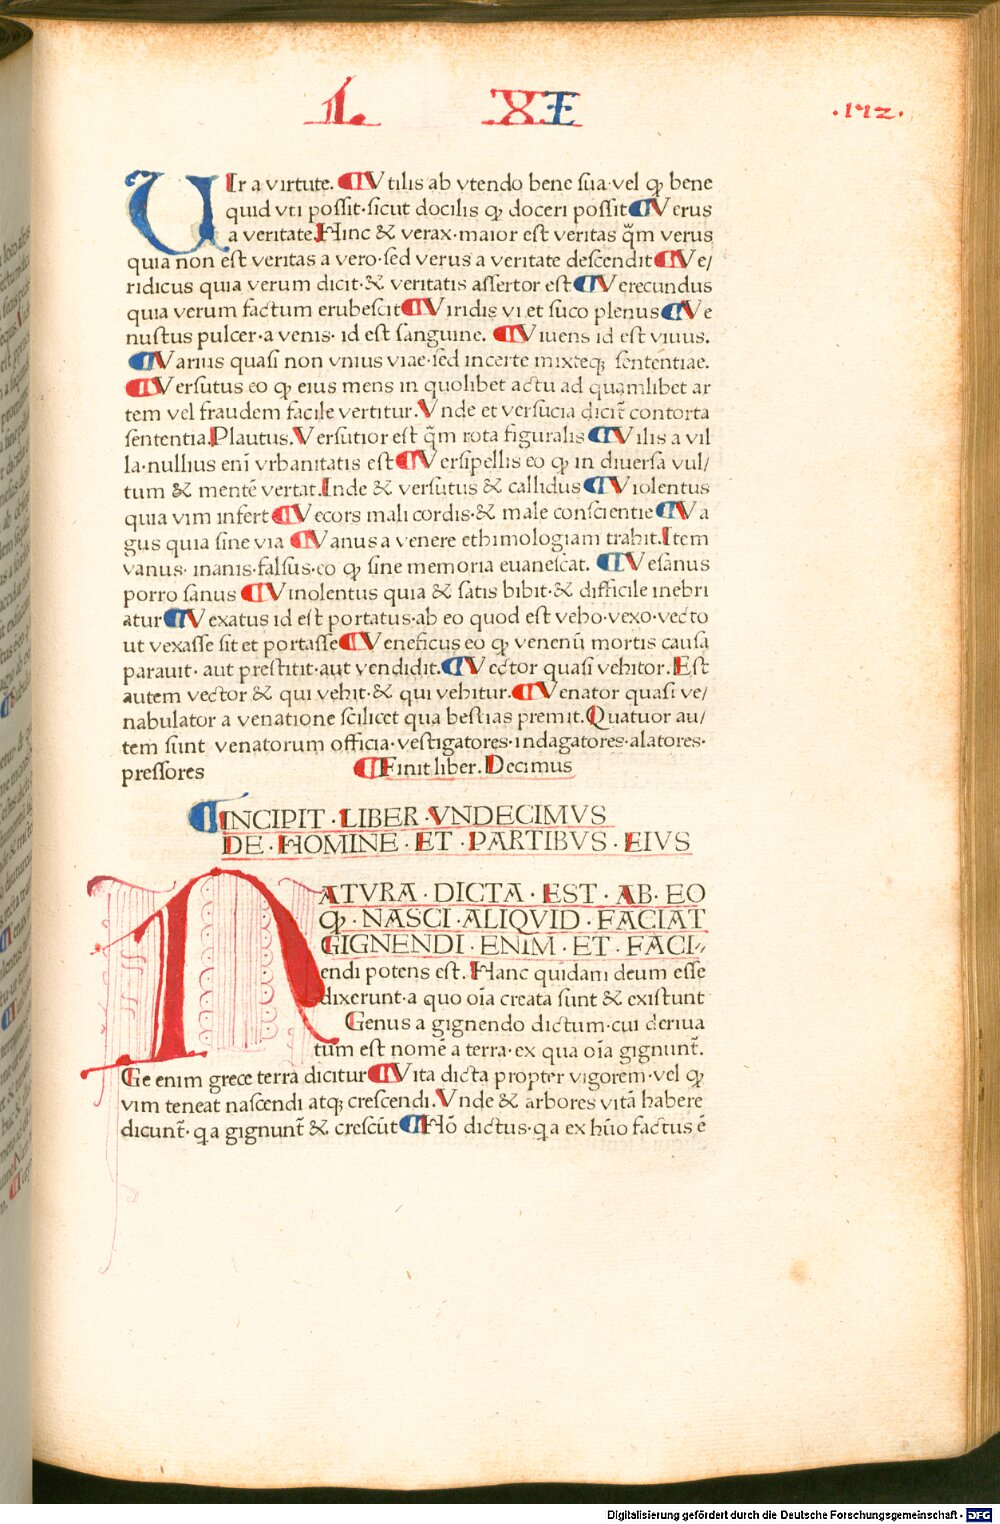 L XI
.172.
UIr a virtute. ¶Vtilis ab vtendo bene sua·vel ꝙ bene
quid vti possit·sicut docilis ꝙ doceri possit¶Verus
a veritate.Hinc & verax·maior est veritas q̃m verus
quia non est veritas a vero·sed verus a veritate descendit¶Ve/
ridicus quia verum dicit·& veritatis assertor est¶Verecundus
quia verum factum erubescit¶Viridis vi et suco plenus¶Ve
nustus pulcer·a venis· id est sanguine. ¶Viuens id est viuus.
¶Varius quasi non vnius viae·sed incerte mixteqꝫ sententiae.
¶Versutus eo ꝙ eius mens in quolibet actu ad quamlibet ar
tem vel fraudem facile vertitur.Vnde et versucia dicit̃ contorta
sententia.Plautus.Versutior est q̃m rota figuralis¶Vilis a vil
la·nullius enĩ vrbanitatis est¶Versipellis eo ꝙ in diuersa vul/
tum & mentẽ vertat.Inde & versutus & callidus¶Violentus
quia vim infert¶Vecors mali cordis·& male conscientie¶Va
gus quia sine via ¶Vanus a venere ethimologiam trahit.Item
vanus· inanis·falsus·eo ꝙ sine memoria euanescat. ¶Vesanus
porro sanus ¶Vinolentus quia & satis bibit·& difficile inebri
atur¶Vexatus id est portatus·ab eo quod est veho·vexo·vecto
ut vexasse sit et portasse¶Veneficus eo ꝙ venenũ mortis causa
parauit· aut prestitit·aut vendidit.¶Vector quasi vehitor.Est
autem vector & qui vehit·& qui vehitur.¶Venator quasi ve/
nabulator a venatione scilicet qua bestias premit.Quatuor au/
tem sunt venatorum officia·vestigatores·indagatores·alatores·
pressores ¶Finit liber. Decimus
¶INCIPIT·LIBER·VNDECIMVS
DE·HOMINE·ET·PARTIBVS·EIVS
NATVRA·DICTA·EST·AB·EO
ꝙ·NASCI·ALIQVID·FACIAT
GIGNENDI·ENIM·ET·FACI/
endi potens est. Hanc quidam deum esse
dixerunt·a quo oĩa creata sunt & existunt
Genus a gignendo dictum·cui deriua
tum est nomẽ a terra·ex qua oĩa gignunt̃.
Ge enim grece terra dicitur¶Vita dicta propter vigorem·vel ꝙ
vim teneat nascendi atqꝫ crescendi.Vnde & arbores vitã habere
dicunt̃· q a gignunt̃ & crescũt¶Hõ dictus·q a ex hũo factus ẽ
Digitalisierung gefördert durch die Deutsche Forschungsgemeinschaft - DFG